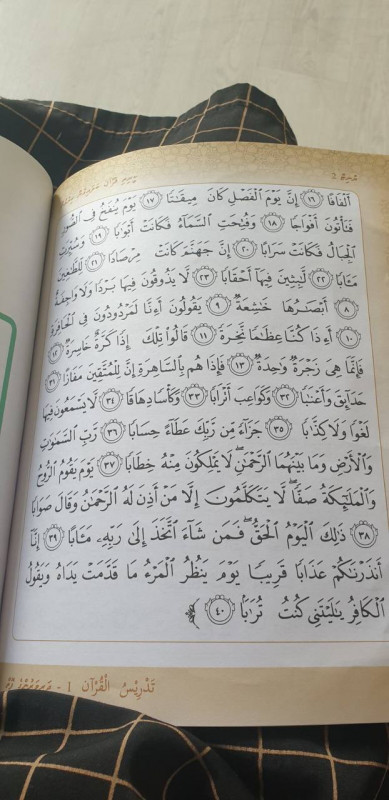 أَلْفَافًا ١٦ إِنَّ يَوْمَ ٱلْفَصْلِ كَانَ مِيقَٰتًا ١٧ يَوْمَ يُنفَخُ فِى ٱلصُّورِ
فَتَأْتُونَ أَفْوَاجًا ١٨ وَفُتِحَتِ ٱلسَّمَآءُ فَكَانَتْ أَبْوَٰبًا ١٩ وَسُيِّرَتِ
ٱلْجِبَالُ فَكَانَتْ سَرَابًا ٢٠ إِنَّ جَهَنَّمَ كَانَتْ مِرْصَادًا ٢١ لِّلطَّٰغِينَ
مَـَٔابًا ٢٢ لَّٰبِثِينَ فِيهَآ أَحْقَابًا ٢٣ لَّا يَذُوقُونَ فِيهَا بَرْدًا وَلَا وَاجِفَةٌ
٨ أَبْصَٰرُهَا خَٰشِعَةٌ ٩ يَقُولُونَ أَءِنَّا لَمَرْدُودُونَ فِى ٱلْحَافِرَةِ
١٠ أَءِذَا كُنَّا عِظَٰمًا نَّخِرَةً ١١ قَالُوا۟ تِلْكَ إِذًا كَرَّةٌ خَاسِرَةٌ ١٢
فَإِنَّمَا هِىَ زَجْرَةٌ وَٰحِدَةٌ ١٣ فَإِذَا هُم بِٱلسَّاهِرَةِ إِنَّ لِلْمُتَّقِينَ مَفَازًا ٣١
حَدَآئِقَ وَأَعْنَٰبًا ٣٢ وَكَوَاعِبَ أَتْرَابًا ٣٣ وَكَأْسًا دِهَاقًا ٣٤ لَّا يَسْمَعُونَ فِيهَا
لَغْوًا وَلَا كِذَّٰبًا ٣٥ جَزَآءً مِّن رَّبِّكَ عَطَآءً حِسَابًا ٣٦ رَّبِّ ٱلسَّمَٰوَٰتِ
وَٱلْأَرْضِ وَمَا بَيْنَهُمَا ٱلرَّحْمَٰنِ لَا يَمْلِكُونَ مِنْهُ خِطَابًا ٣٧ يَوْمَ يَقُومُ ٱلرُّوحُ
وَٱلْمَلَٰٓئِكَةُ صَفًّا لَّا يَتَكَلَّمُونَ إِلَّا مَنْ أَذِنَ لَهُ ٱلرَّحْمَٰنُ وَقَالَ صَوَابًا
٣٨ ذَٰلِكَ ٱلْيَوْمُ ٱلْحَقُّ فَمَن شَآءَ ٱتَّخَذَ إِلَىٰ رَبِّهِۦ مَـَٔابًا ٣٩ إِنَّآ
أَنذَرْنَٰكُمْ عَذَابًا قَرِيبًا يَوْمَ يَنظُرُ ٱلْمَرْءُ مَا قَدَّمَتْ يَدَاهُ وَيَقُولُ
ٱلْكَافِرُ يَٰلَيْتَنِى كُنتُ تُرَٰبًۢا ٤٠
تَدْرِيسُ الْقُرْآن 1 -